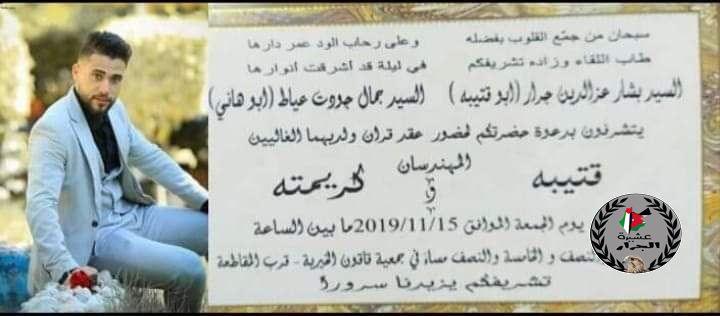 سبحان من جمّع القلوب بفضله
وعلى رحاب الود عمر دارها
طاب اللقاء وزاده تشريفكم
في ليلة قد أشرقت أنوارها
السيد بشار عزالدين جرار (ابو قتيبه)
السيد جمال جودت عياط (ابو هاني)
يتشرفون بدعوة حضرتكم لحضور عقد قران ولديهما الغاليين
المهندسان
قتيبه
و
كريمته
يوم الجمعة الموافق 2019/11/15 ما بين الساعة
نصف و الخامسة والنصف مساءً في جمعية قاقون الخيرية - قرب المقاطعة
تشريفكم يزيدنا سرورا
عشيرة
الجرار